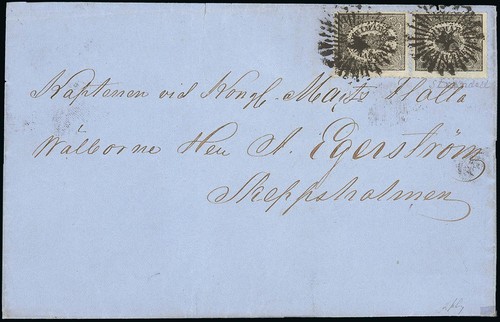 Kaptenen vid Kongl. Majts Flotta
Wälborne Herr A. Egerström
Skeppsholmen